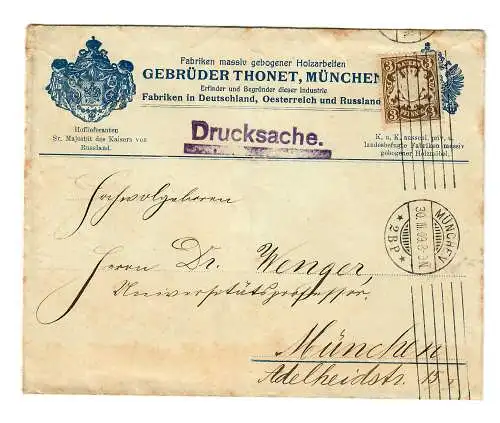 Fabriken massiv gebogener Holzarbeiten
GEBRÜDER THONET, MÜNCHEN
Erfinder und Begründer dieser Industrie
Fabriken in Deutschland, Oesterreich und Russland
Hoflieferanten
Sr. Majestät des Kaisers von
Russland.
Drucksache.
K. u. K. ausschl. priv. u.
landesbefugte Fabriken massiv
gebogener Holzmöbel.
3 BAYERN 3
3 PFENNIG 3
MÜNCHEN
30. III. 09. 8-9N.
* 2 B.P. *
Hochwolgeboren
Herrn Dr. Wenger,
Universitätsprofessor.
München
Adelheidstr. 15